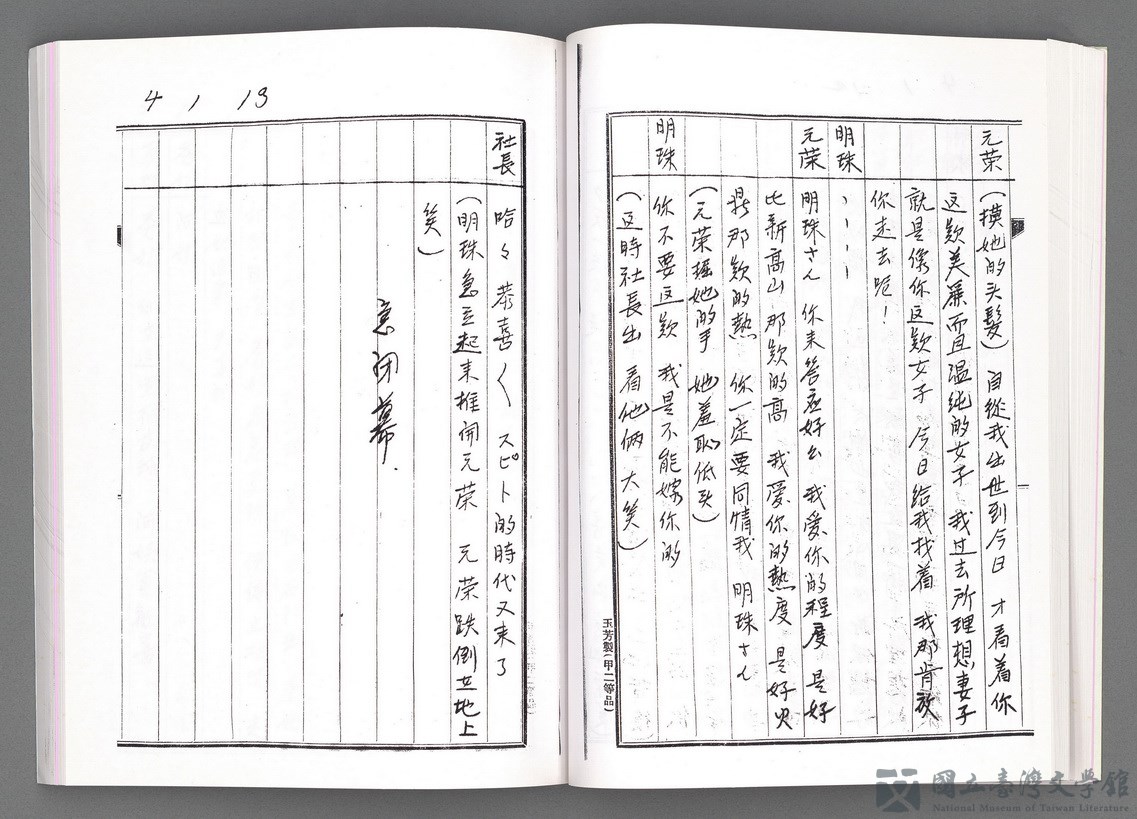 元荣 (摸她的头髮) 自從我出世到今日 才看着你
这欵美麗而且温純的女子 我过去所理想妻子
就是像你这欵女子 今日給我找着 我那肯放
你走去呢!
明珠 、、、、
元荣 明珠さん 你来答应好么 我爱你的程度 是好
比新高山 那欵的高 我爱你的熱度 是好火
那欵的熱 你一定要同情我 明珠さん
(元荣 她的手 她羞恥低头)
明珠 你不要这欵 我是不能嫁你的
(这時社長出 看他俩 大笑)
玉芳製(甲二等品)
4 1 13
社長 哈々 恭喜〱 スピート的時代又来了
(明珠急立起来推開元荣 元荣跌倒在地上
笑)
急闭幕.
國立臺灣文學館
National Museum of Taiwan Literature